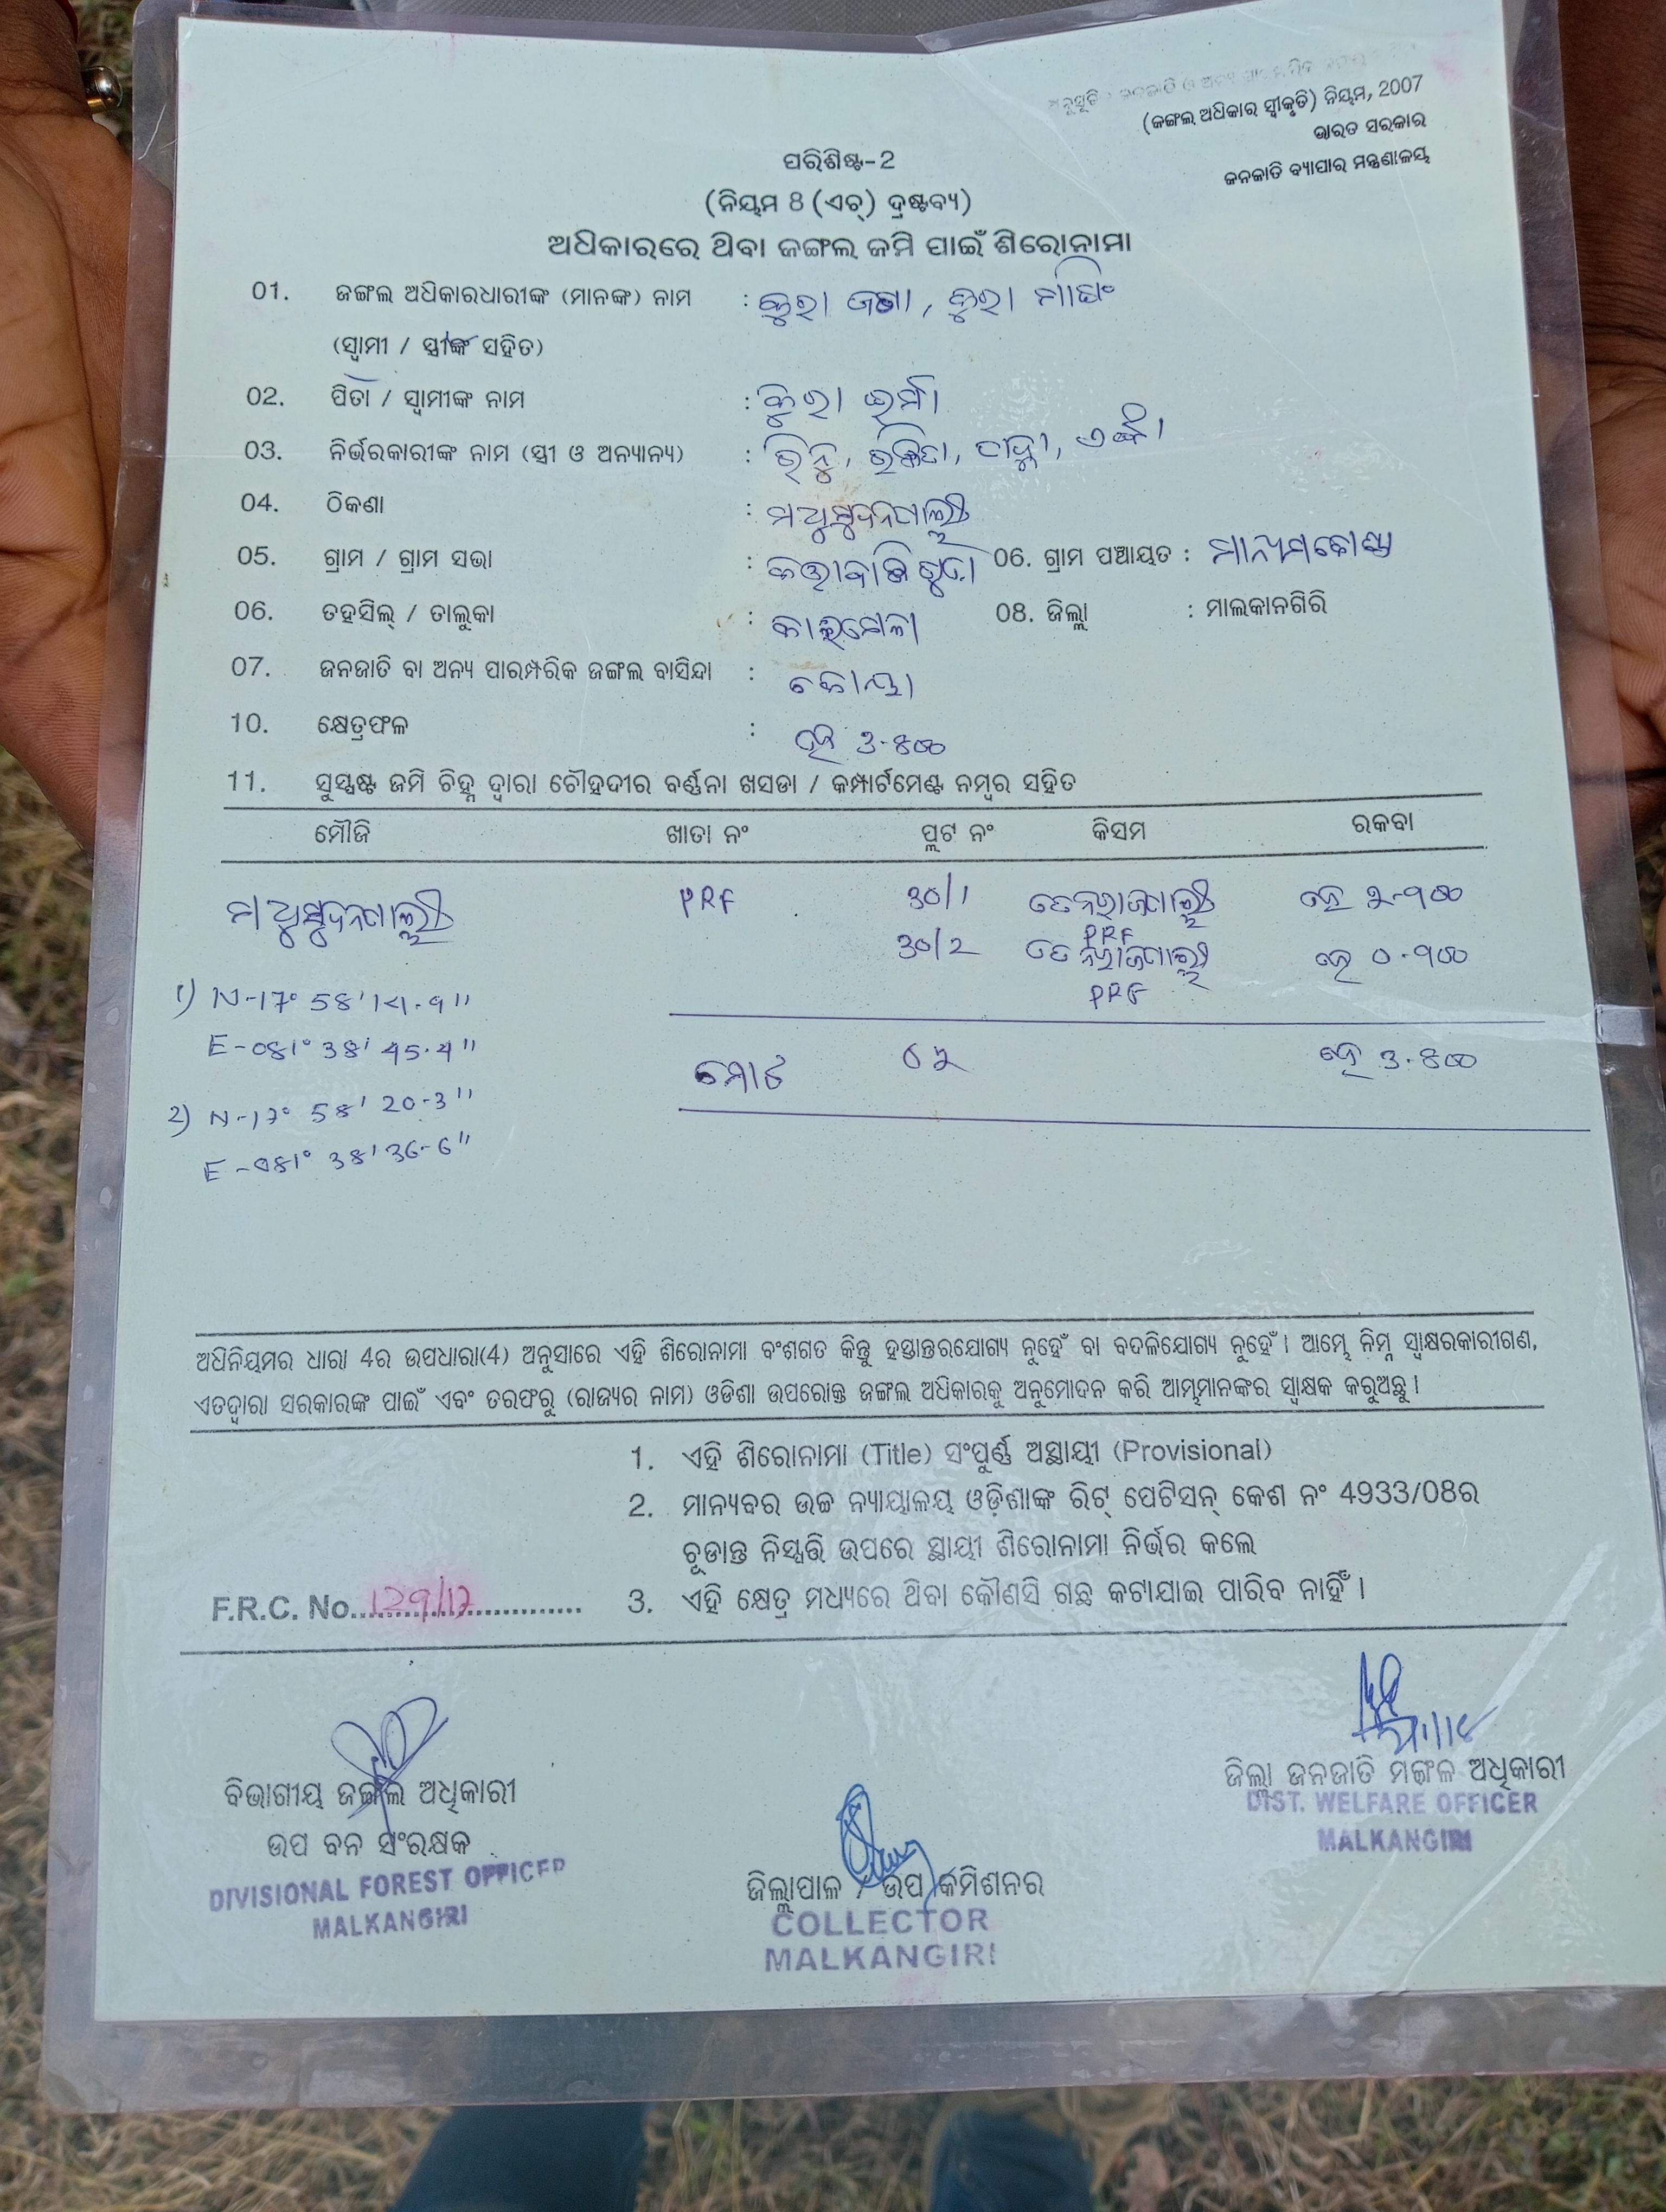 (ଜଙ୍ଗଲ ଅଧିକାର ସ୍ୱୀକୃତି) ନିୟମ, 2007
ଭାରତ ସରକାର
ଜନଜାତି ବ୍ୟାପାର ମନ୍ତ୍ରଣାଳୟ
ପରିଶିଷ୍ଟ-2
(ନିୟମ 8 (ଏଚ୍) ଦ୍ରଷ୍ଟବ୍ୟ)
ଅଧିକାରରେ ଥିବା ଜଙ୍ଗଲ ଜମି ପାଇଁ ଶିରୋନାମା
01. ଜଙ୍ଗଲ ଅଧିକାରଧାରୀଙ୍କ (ମାନଙ୍କ) ନାମ : କୁରା
(ସ୍ୱାମୀ / ସ୍ତ୍ରୀଙ୍କ ସହିତ)
02. ପିତା / ସ୍ୱାମୀଙ୍କ ନାମ : କୁରା
03. ନିର୍ଭରକାରୀଙ୍କ ନାମ (ସ୍ତ୍ରୀ ଓ ଅନ୍ୟାନ୍ୟ) :
04. ଠିକଣା :
05. ଗ୍ରାମ / ଗ୍ରାମ ସଭା : 06. ଗ୍ରାମ ପଞ୍ଚାୟତ : ମାନ୍ୟମକୋଣ୍ଡା
06. ତହସିଲ୍ / ତାଲୁକା : କାଲିମେଳା 08. ଜିଲ୍ଲା : ମାଲକାନଗିରି
07. ଜନଜାତି ବା ଅନ୍ୟ ପାରମ୍ପରିକ ଜଙ୍ଗଲ ବାସିନ୍ଦା : କୋୟା
10. କ୍ଷେତ୍ରଫଳ : ହେ ୩.୫୦୦
11. ସୁସ୍ପଷ୍ଟ ଜମି ଚିହ୍ନ ଦ୍ୱାରା ଚୌହଦୀର ବର୍ଣ୍ଣନା ଖସଡା / କମ୍ପାର୍ଟମେଣ୍ଟ ନମ୍ବର ସହିତ
ମୌଜି ଖାତା ନଂ ପ୍ଲଟ ନଂ କିସମ ରକବା
PRF 30/1 ହେ
PRF
30/2 ହେ
PRF
1) N-17° 58' 14.9"
E-081° 38' 45.4"
ମୋଟ ହେ ୩.୫୦୦
2) N-17° 58' 20.3"
E-081° 38' 36.6"
ଅଧିନିୟମର ଧାରା 4ର ଉପଧାରା(4) ଅନୁସାରେ ଏହି ଶିରୋନାମା ବଂଶଗତ କିନ୍ତୁ ହସ୍ତାନ୍ତରଯୋଗ୍ୟ ନୁହେଁ ବା ବଦଳିଯୋଗ୍ୟ ନୁହେଁ। ଆମ୍ଭେ ନିମ୍ନ ସ୍ୱାକ୍ଷରକାରୀଗଣ,
ଏତଦ୍ୱାରା ସରକାରଙ୍କ ପାଇଁ ଏବଂ ତରଫରୁ (ରାଜ୍ୟର ନାମ) ଓଡିଶା ଉପରୋକ୍ତ ଜଙ୍ଗଲ ଅଧିକାରକୁ ଅନୁମୋଦନ କରି ଆମ୍ଭମାନଙ୍କର ସ୍ୱାକ୍ଷକ କରୁଅଛୁ।
1. ଏହି ଶିରୋନାମା (Title) ସଂପୁର୍ଣ୍ଣ ଅସ୍ଥାୟୀ (Provisional)
2. ମାନ୍ୟବର ଉଚ୍ଚ ନ୍ୟାୟାଳୟ ଓଡ଼ିଶାଙ୍କ ରିଟ୍ ପେଟିସନ୍ କେଶ ନଂ 4933/08ର
ଚୂଡାନ୍ତ ନିସ୍ପତ୍ତି ଉପରେ ସ୍ଥାୟୀ ଶିରୋନାମା ନିର୍ଭର କଲେ
F.R.C. No. 129/17 3. ଏହି କ୍ଷେତ୍ର ମଧ୍ୟରେ ଥିବା କୌଣସି ଗଛ କଟାଯାଇ ପାରିବ ନାହିଁ।
ବିଭାଗୀୟ ଜଙ୍ଗଲ ଅଧିକାରୀ
ଉପ ବନ ସଂରକ୍ଷକ
DIVISIONAL FOREST OFFICER
MALKANGIRI
ଜିଲ୍ଲାପାଳ / ଉପ କମିଶନର
COLLECTOR
MALKANGIRI
ଜିଲ୍ଲା ଜନଜାତି ମଙ୍ଗଳ ଅଧିକାରୀ
DIST. WELFARE OFFICER
MALKANGIRI